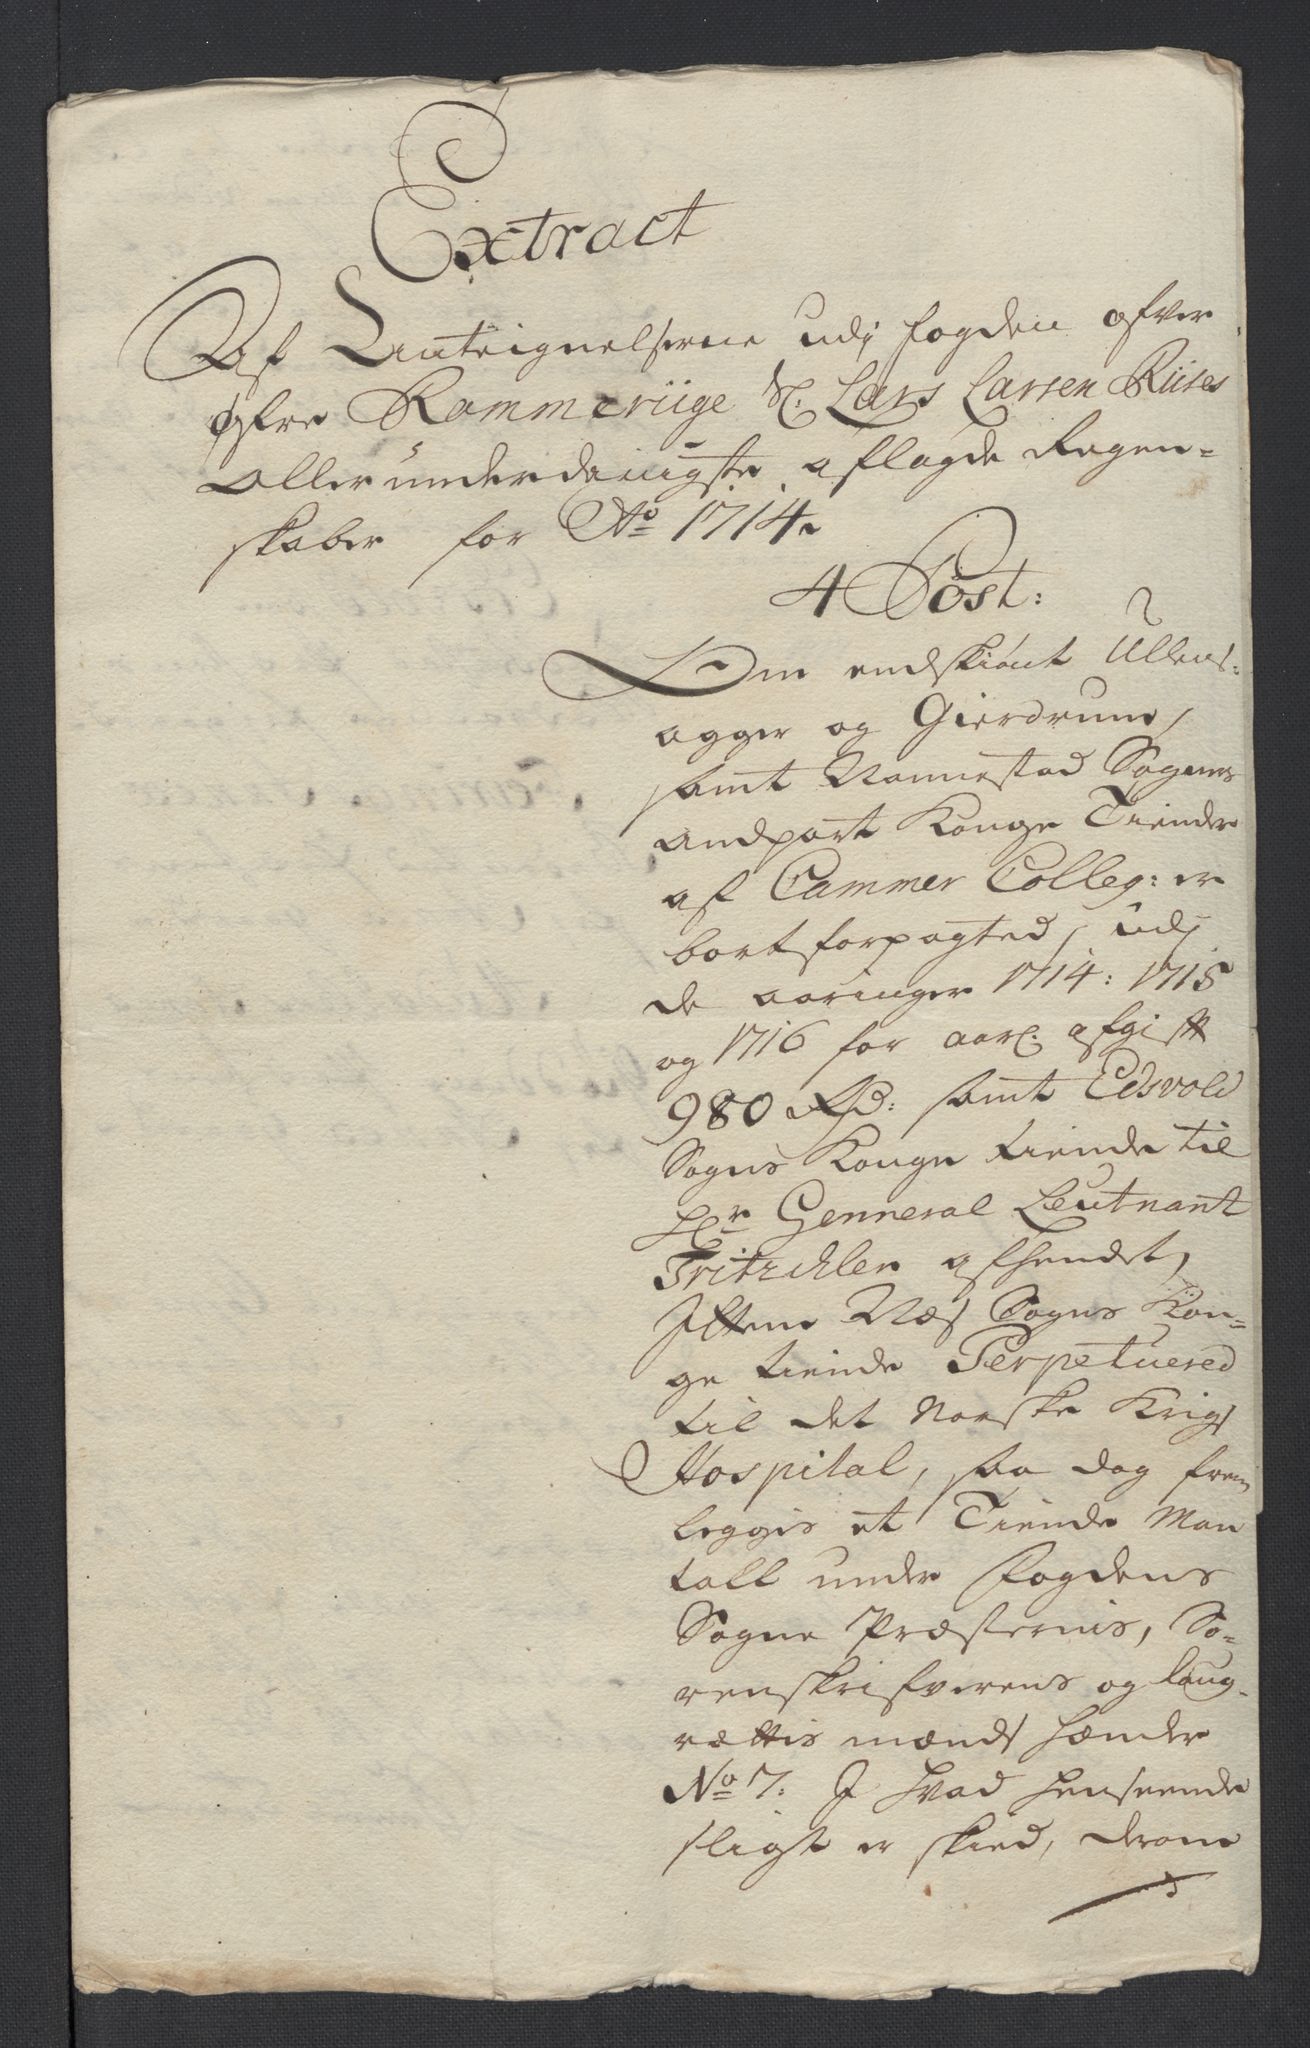 Extract
Af Anteignelserne udj fogden ofver
øfre Rommeriige Sr: Lars Larsen Riises
allerunderdanigste aflagde Regen=
skaber for Ao 1714.
4 Post:
Om endskiønt Ullens=
agger og Gierdrum,
samt Nannestad Sognes
andpart Konge Tiender
af Cammer Colleg: er
bortforpagted, udj
de aaringer 1714: 1715
og 1716 for aarl: afgift
980 Rd: samt Edsvold
Sogns Konge tiende til
Hr Genneral Leutnant
Tritzchler afhendet,
Jttem Næs Sogns Kon=
ge tiende Perpetuered
til det Norske Krigs
Hospital, saa dog frem
leggis et Tiende Man
tall under fogdens
Sogne Præsternis, So=
renskrifverens og laug=
rættis mænds hænder
No 7. J hvad henseende
sligt er skied, derom